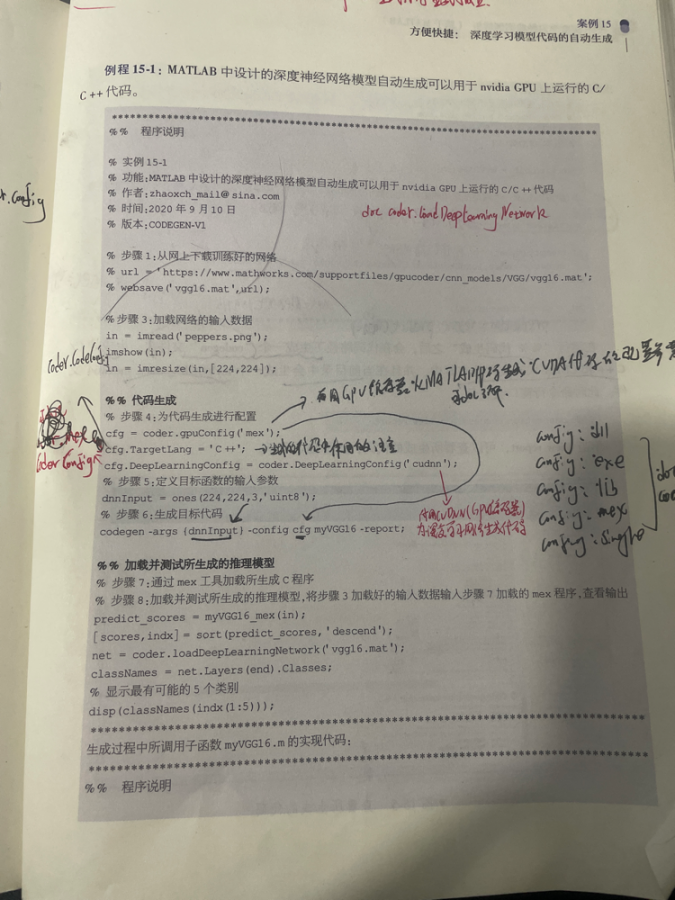 案例 15
方便快捷： 深度学习模型代码的自动生成
例程 15-1：MATLAB 中设计的深度神经网络模型自动生成可以用于 nvidia GPU 上运行的 C/
C ++ 代码。
%% 程序说明
% 实例 15-1
% 功能:MATLAB 中设计的深度神经网络模型自动生成可以用于 nvidia GPU 上运行的 C/C ++ 代码
% 作者:zhaoxch_mail@ sina.com
% 时间:2020 年 9 月 10 日
doc coder.loadDeepLearning Network
% 版本:CODEGEN-V1
% 步骤 1:从网上下载训练好的网络
% url = 'https://www.mathworks.com/supportfiles/gpucoder/cnn_models/VGG/vgg16.mat';
% websave('vgg16.mat',url);
% 步骤 3:加载网络的输入数据
in = imread('peppers.png');
imshow(in);
in = imresize(in,[224,224]);
%% 代码生成
% 步骤 4:为代码生成进行配置
cfg = coder.gpuConfig('mex');
cfg.TargetLang = 'C ++';
cfg.DeepLearningConfig = coder.DeepLearningConfig('cudnn');
% 步骤 5:定义目标函数的输入参数
dnnInput = ones(224,224,3,'uint8');
% 步骤 6:生成目标代码
codegen -args {dnnInput} -config cfg myVGG16 -report;
config : dll
config : exe
config : lib
config : mex
%% 加载并测试所生成的推理模型
% 步骤 7:通过 mex 工具加载所生成 C 程序
% 步骤 8:加载并测试所生成的推理模型,将步骤 3 加载好的输入数据输入步骤 7 加载的 mex 程序,查看输出
predict_scores = myVGG16_mex(in);
[scores,indx] = sort(predict_scores, 'descend');
net = coder.loadDeepLearningNetwork('vgg16.mat');
classNames = net.Layers(end).Classes;
% 显示最有可能的 5 个类别
disp(classNames(indx(1:5)));
生成过程中所调用子函数 myVGG16.m 的实现代码:
%% 程序说明